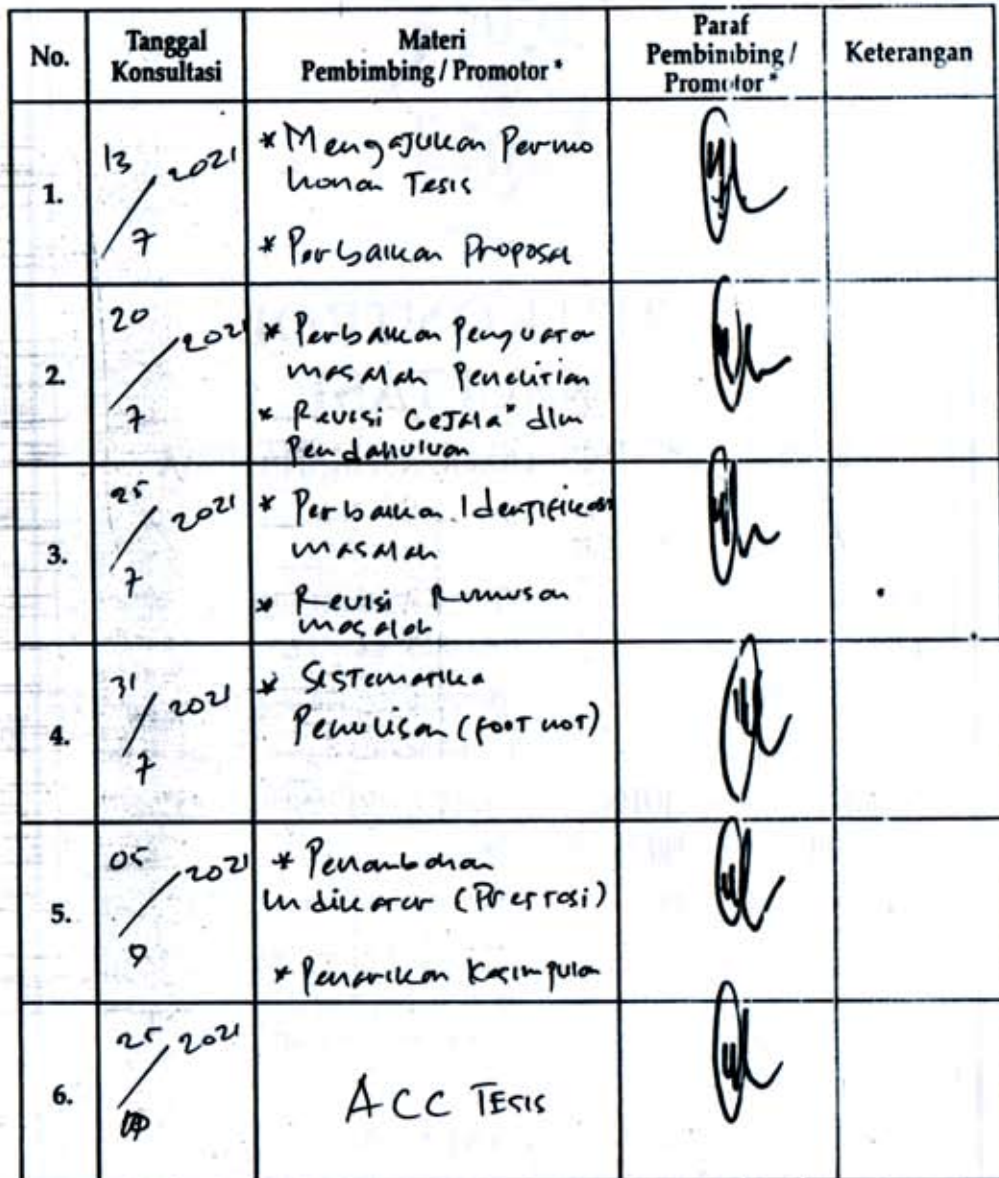 No.
Tanggal
Konsultasi
Materi
Pembimbing / Promotor *
Paraf
Pembimbing /
Promotor *
Keterangan
1.
13 / 7 2021
* Mengajukan Permo
honan Tesis
* Perbaikan Proposal
2.
20 / 7 2021
* Perbaikan Penguatan
masalah Penelitian
* Revisi Gejala" dlm
Pendahuluan
3.
25 / 7 2021
* Perbaikan Identifikasi
masalah
* Revisi Rumusan
masalah
4.
31 / 7 2021
* Sistematika
Penulisan (foot not)
5.
05 / 2021
* Penambahan
Indikator (Prestasi)
* Penarikan Kesimpulan
6.
25 / 2021
ACC TESIS